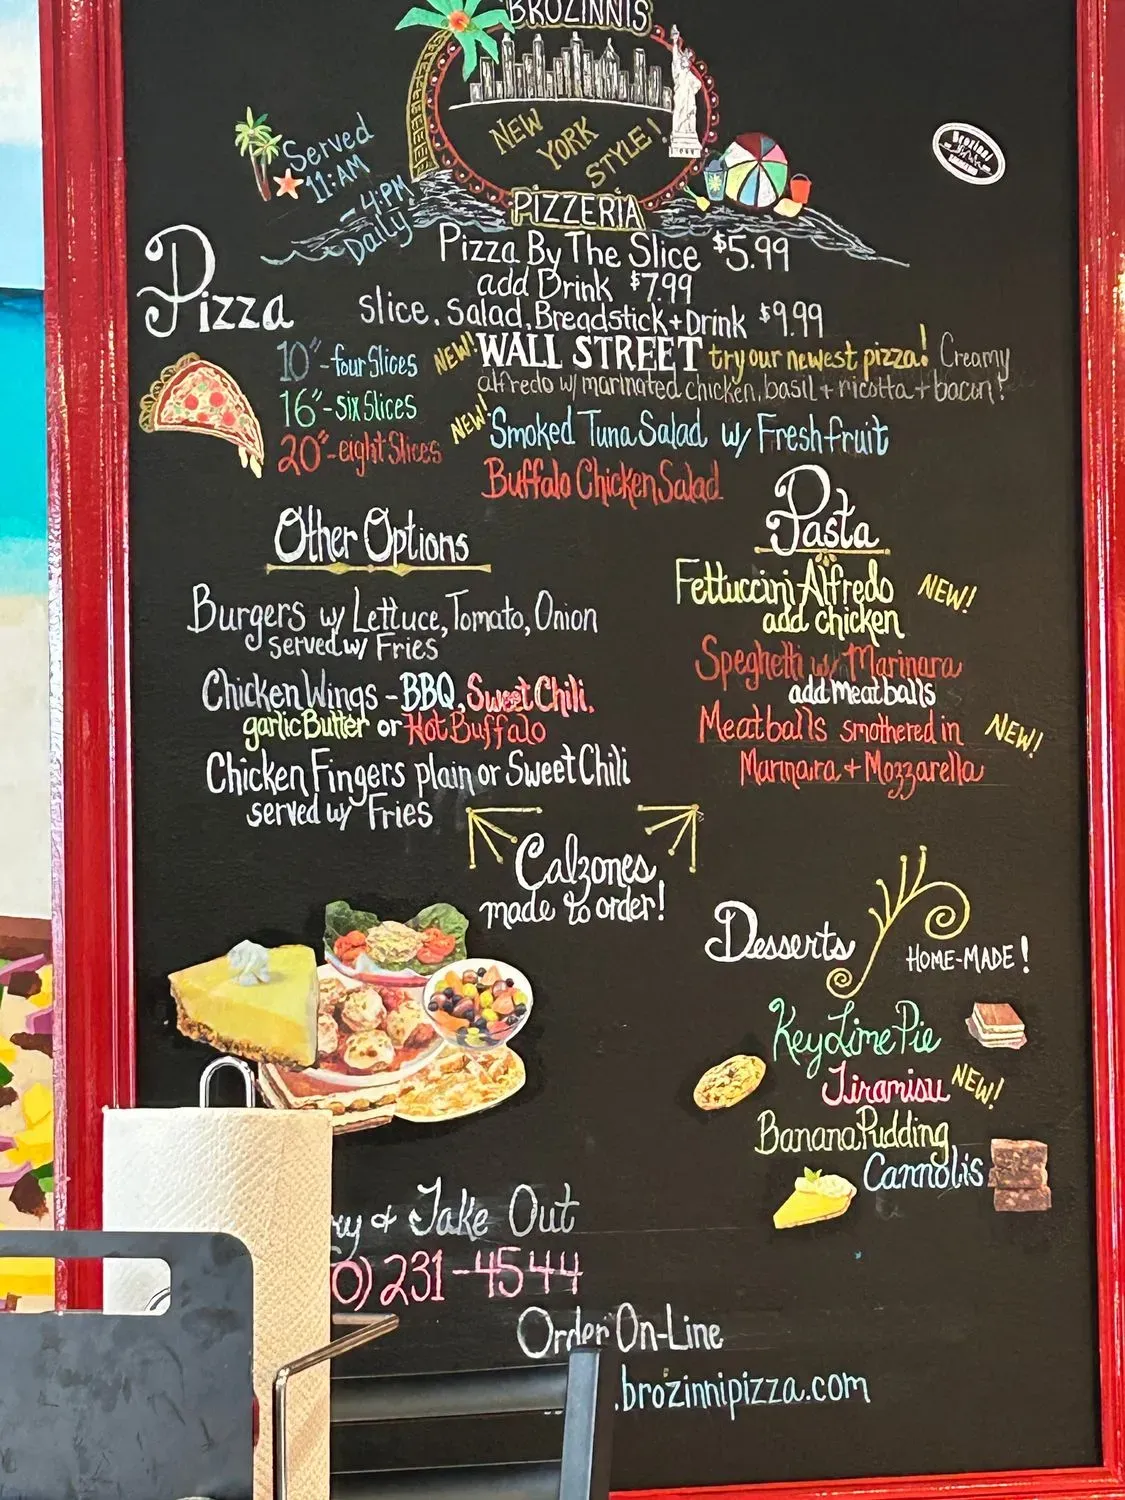 BROZINNIS
NEW
YORK
STYLE!
PIZZERIA
Served
11:AM
-4:PM
Daily
Brozinni
Pizza By The Slice $5.99
add Drink $7.99
slice, Salad, Breadstick + Drink $9.99
Pizza
10"-four Slices
16"-six Slices
20"-eight Slices
NEW! WALL STREET try our newest pizza! Creamy
alfredo w/ marinated chicken, basil + ricotta + bacon!
NEW! Smoked Tuna Salad w/ Fresh fruit
Buffalo Chicken Salad
Other Options
Burgers w/ Lettuce, Tomato, Onion
served w/ Fries
Chicken Wings - BBQ, Sweet Chili,
garlic Butter or Hot Buffalo
Chicken Fingers plain or Sweet Chili
served w/ Fries
Pasta
Fettuccini Alfredo NEW!
add chicken
Speghetti w/ Marinara
add meatballs
Meatballs smothered in NEW!
Marinara + Mozzarella
Calzones
made to order!
Desserts HOME-MADE!
Key Lime Pie
Tiramisu NEW!
Banana Pudding
Cannolis
ry & Take Out
0) 231-4544
Order On-Line
.brozinnipizza.com